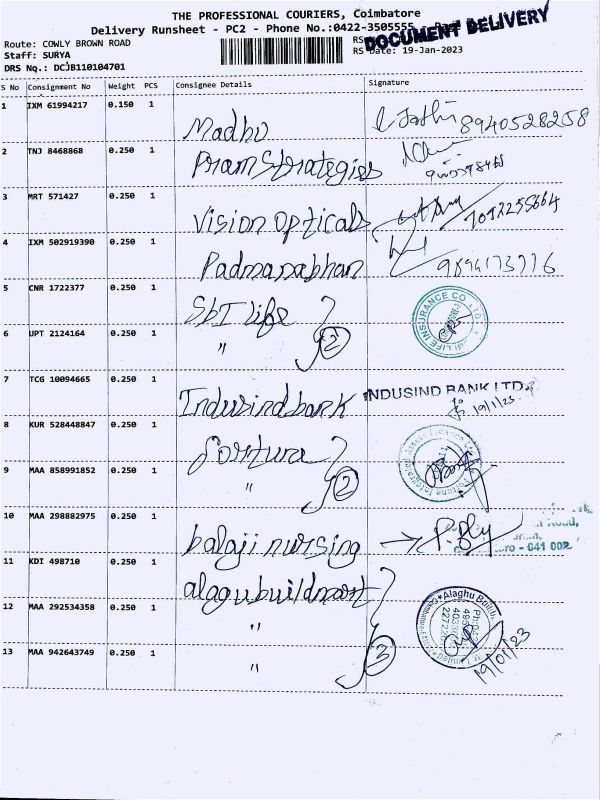 THE PROFESSIONAL COURIERS, Coimbatore
Delivery Runsheet - PC2 - Phone No.:0422-3505555
DOCUMENT DELIVERY
Route: COWLY BROWN ROAD
Staff: SURYA
RS Date: 19-Jan-2023
DRS No.: DCJB110104701
S No Consignment No Weight PCS Consignee Details Signature
1 IXM 61994217 0.150 1
Madhu 8940528258
2 TNJ 8468868 0.250 1
Pram Strategies
3 MRT 571427 0.250 1
Vision Opticals
4 IXM 502919390 0.250 1
Padmanabhan
5 CNR 1722377 0.250 1
SBI life
6 UPT 2124164 0.250 1
" 2
7 TCG 10094665 0.250 1
Indusind bank INDUSIND BANK LTD.
19/1/23
8 KUR 528448847 0.250 1
fortune
9 MAA 858991852 0.250 1
" 2
10 MAA 298882975 0.250 1
balaji nursing
641 002
11 KDI 498710 0.250 1
alagubuildmart
12 MAA 292534358 0.250 1
"
13 MAA 942643749 0.250 1
" 3
19/01/23